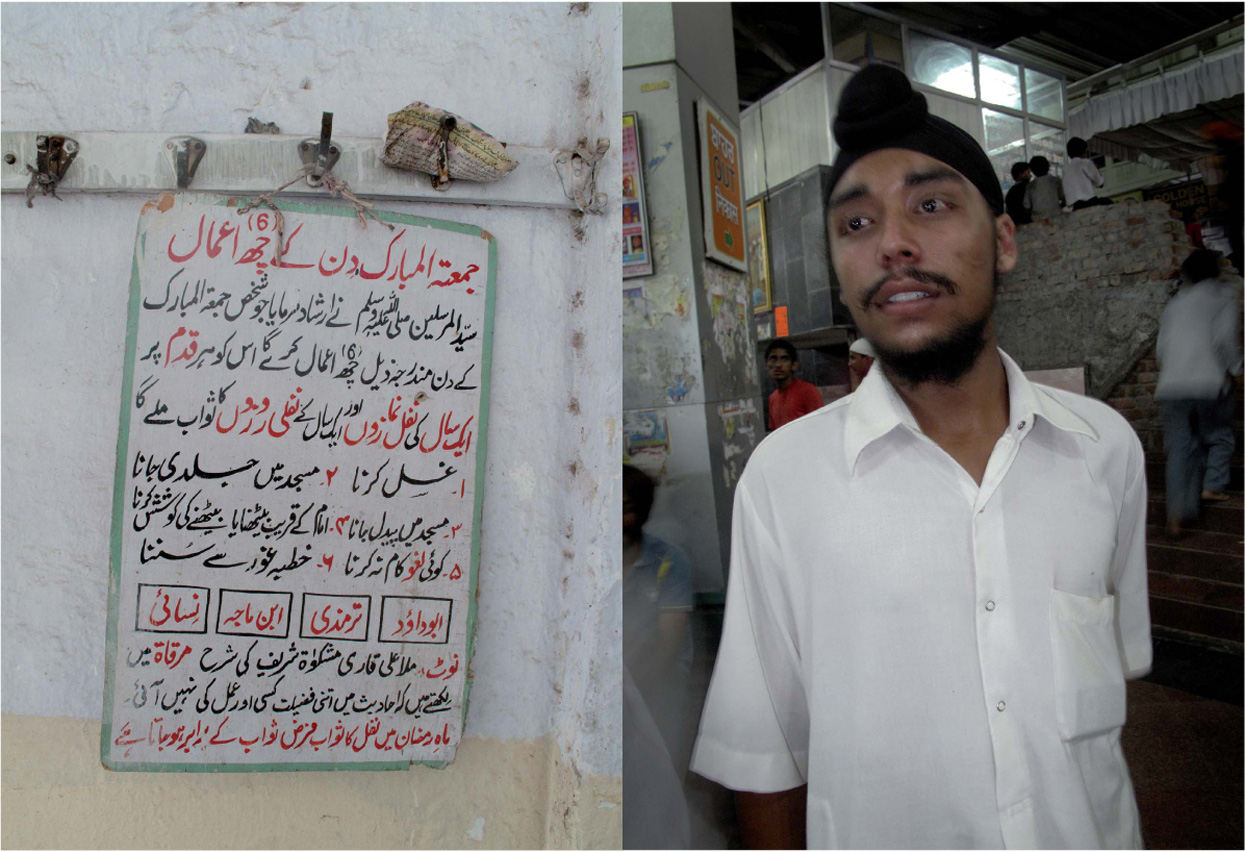 جمعۃ المبارک دن کے چھ (6) اعمال
سیّد المرسلین صلی اللہ علیہ وسلم نے ارشاد فرمایا جو شخص جمعۃ المبارک
کے دن مندرجہ ذیل چھ (6) اعمال کرے گا اس کو ہر قدم پر
ایک سال کی نفل نمازوں اور ایک سال کے نفلی روزوں کا ثواب ملے گا
۱۔ غسل کرنا ۲۔ مسجد میں جلدی جانا
۳۔ مسجد میں پیدل جانا ۴۔ امام کے قریب بیٹھنا یا بیٹھنے کی کوشش کرنا
۵۔ کوئی لغو کام نہ کرنا ۶۔ خطبہ غور سے سُننا
ابوداؤد ترمذی ابن ماجہ نسائی
نوٹ:۔ ملا علی قاری مشکوٰۃ شریف کی شرح مرقاۃ میں
لکھتے ہیں کہ احادیث میں اتنی فضیلت کسی اور عمل کی نہیں آئی۔
ماہِ رمضان میں نفل کا ثواب فرض ثواب کے برابر ہو جاتا ہے
ਬਾਹਰ
OUT
निकास
GOLDEN
HOUSE